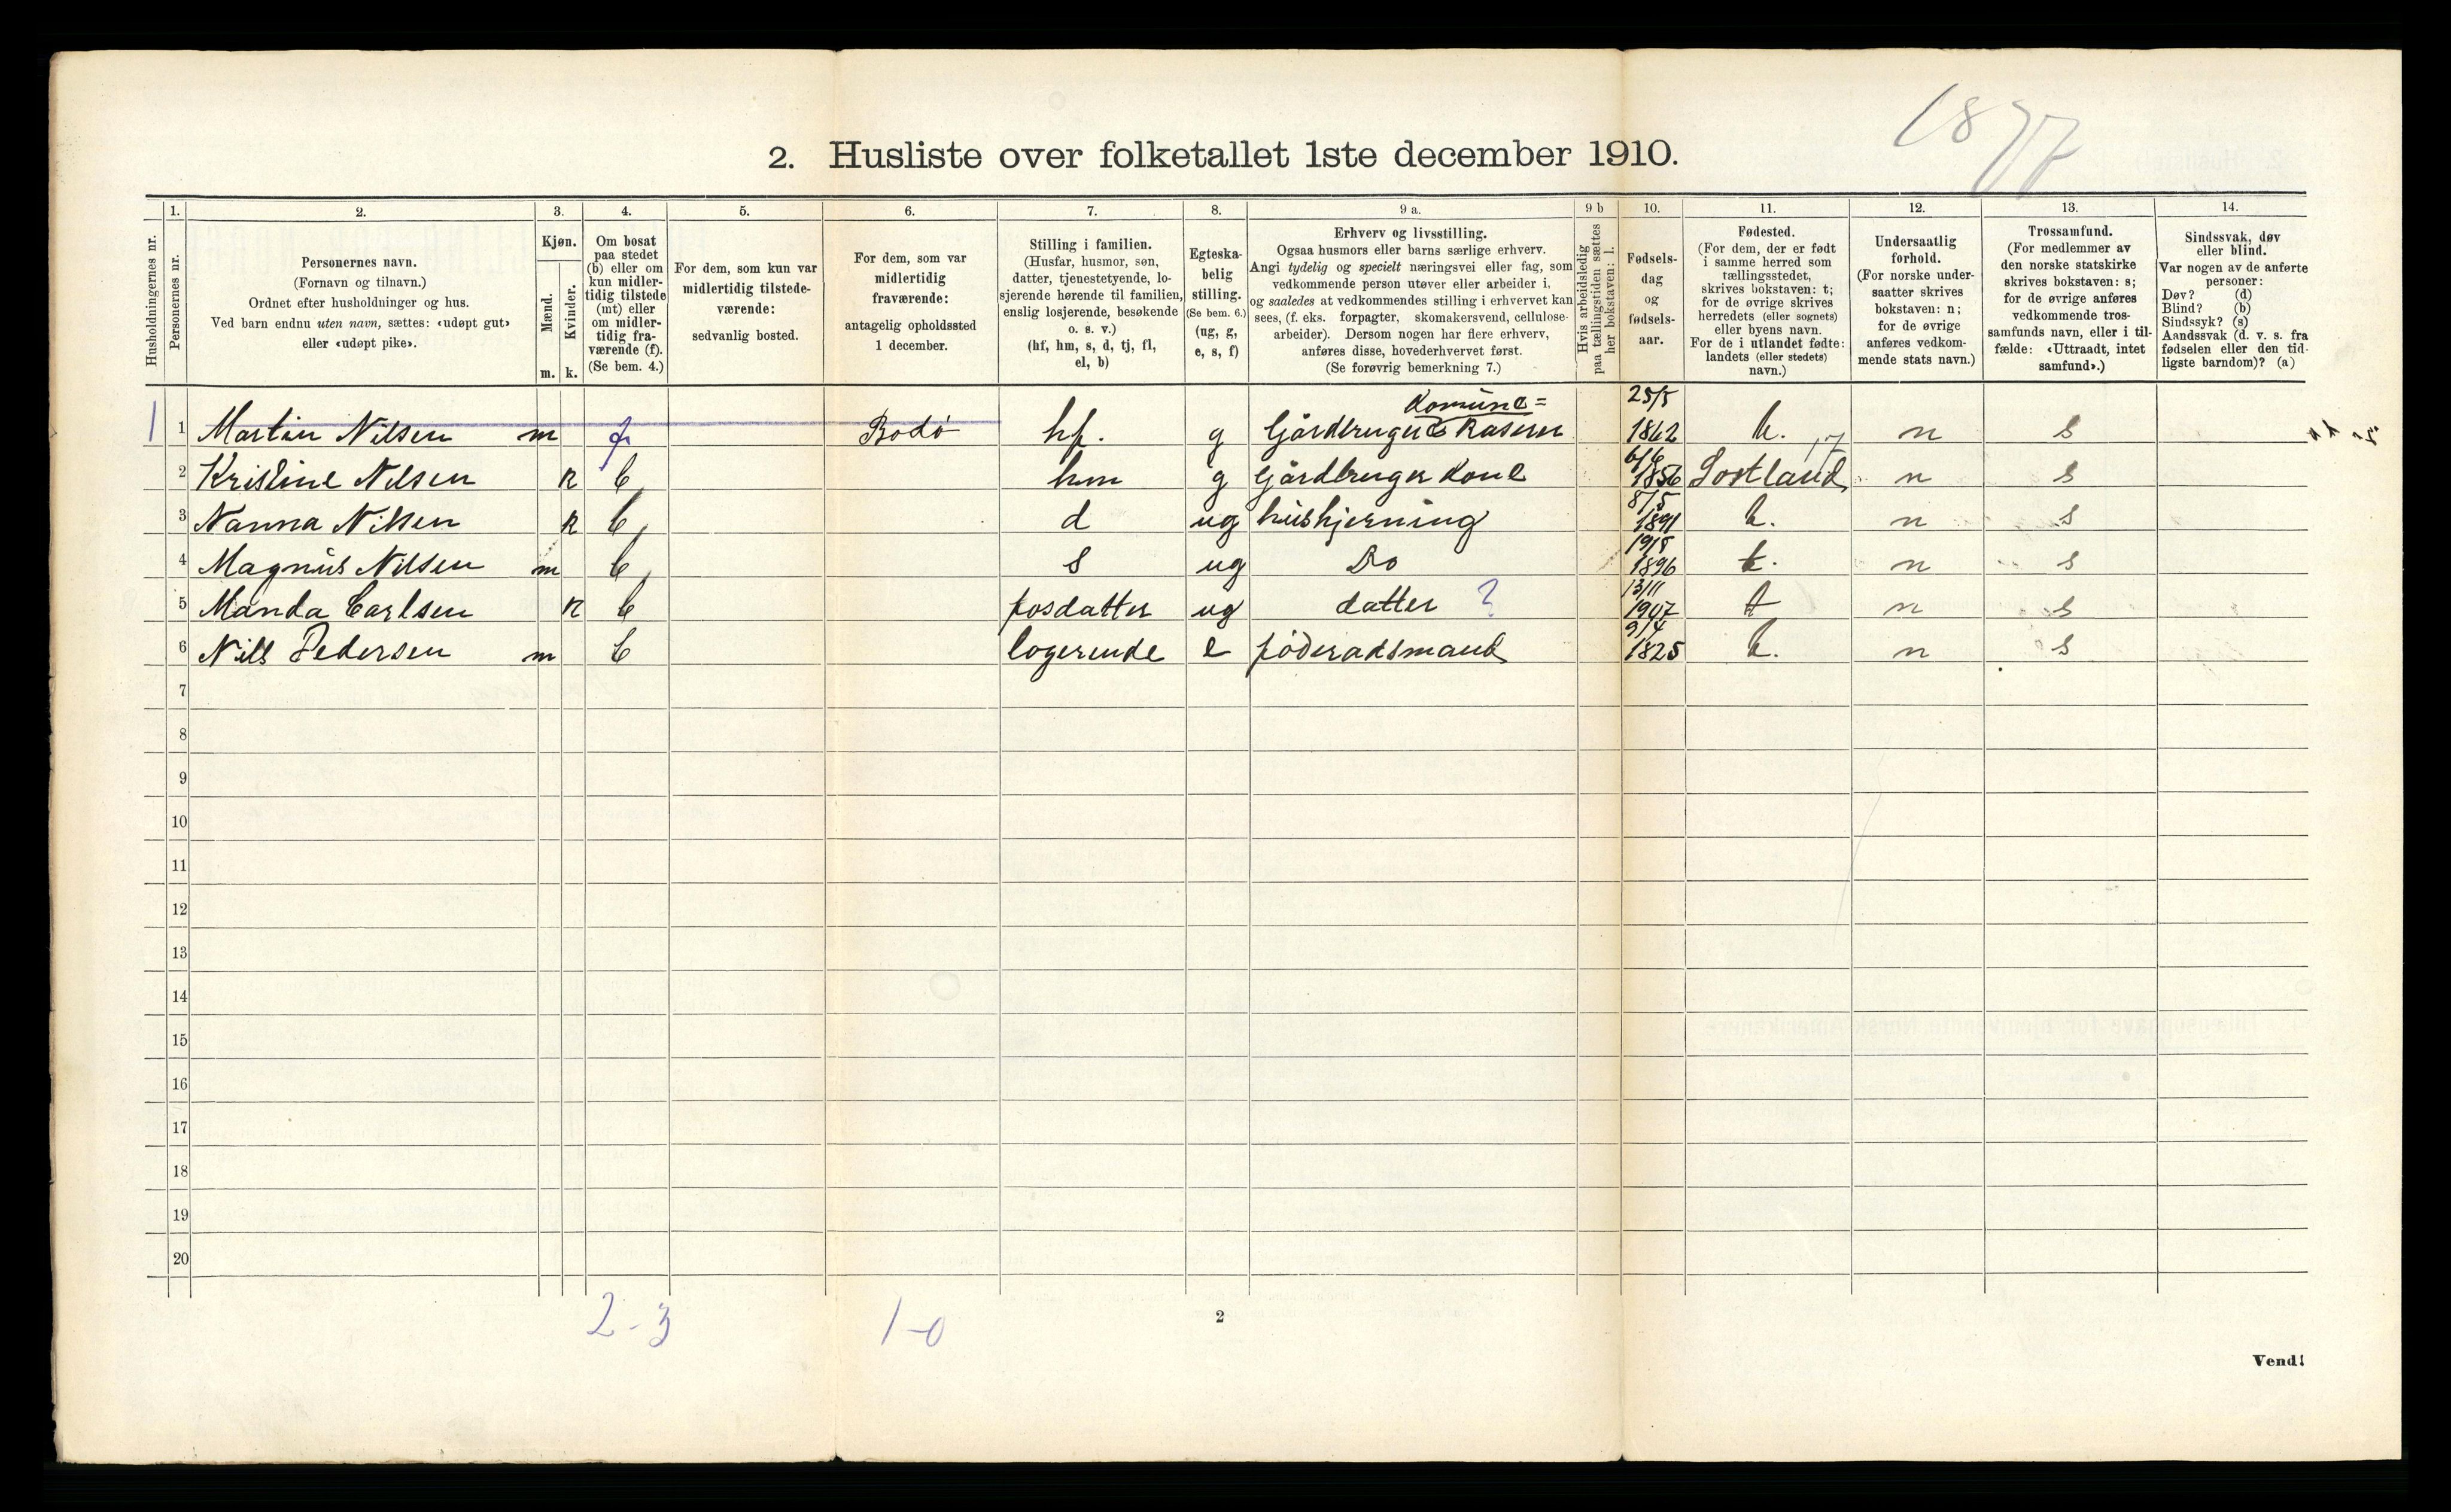 1877
2. Husliste over folketallet 1ste december 1910.
1. 2. 3. 4. 5. 6. 7. 8. 9 a. 9 b 10. 11. 12. 13. 14.
Husholdningernes nr.
Personernes nr.
Personernes navn.
(Fornavn og tilnavn.)
Ordnet efter husholdninger og hus.
Ved barn endnu uten navn, sættes: «udøpt gut»
eller «udøpt pike».
Kjøn.
Mænd.
Kvinder.
m. k.
Om bosat
paa stedet
(b) eller om
kun midler-
tidig tilstede
(mt) eller
om midler-
tidig fra-
værende (f).
(Se bem. 4.)
For dem, som kun var
midlertidig tilstede-
værende:
sedvanlig bosted.
For dem, som var
midlertidig
fraværende:
antagelig opholdssted
1 december.
Stilling i familien.
(Husfar, husmor, søn,
datter, tjenestetyende, lo-
sjerende hørende til familien,
enslig losjerende, besøkende
o. s. v.)
(hf, hm, s, d, tj, fl,
el, b)
Egteska-
belig
stilling.
(Se bem. 6.)
(ug, g,
e, s, f)
Erhverv og livsstilling.
Ogsaa husmors eller barns særlige erhverv.
Angi tydelig og specielt næringsvei eller fag, som
vedkommende person utøver eller arbeider i,
og saaledes at vedkommendes stilling i erhvervet kan
sees, (f. eks. forpagter, skomakersvend, cellulose-
arbeider). Dersom nogen har flere erhverv,
anføres disse, hovederhvervet først.
(Se forøvrig bemerkning 7.)
Hvis arbeidsledig
paa tællingstiden sættes
her bokstaven: l.
Fødsels-
dag
og
fødsels-
aar.
Fødested.
(For dem, der er født
i samme herred som
tællingsstedet,
skrives bokstaven: t;
for de øvrige skrives
herredets (eller sognets)
eller byens navn.
For de i utlandet fødte:
landets (eller stedets)
navn.)
Undersaatlig
forhold.
(For norske under-
saatter skrives
bokstaven: n;
for de øvrige
anføres vedkom-
mende stats navn.)
Trossamfund.
(For medlemmer av
den norske statskirke
skrives bokstaven: s;
for de øvrige anføres
vedkommende tros-
samfunds navn, eller i til-
fælde: «Uttraadt, intet
samfund».)
Sindssvak, døv
eller blind.
Var nogen av de anførte
personer:
Døv? (d)
Blind? (b)
Sindssyk? (s)
Aandssvak (d. v. s. fra
fødselen eller den tid-
ligste barndom)? (a)
1 1 Martin Nilsen m f Bodø hf. g Gårdbruger & Komune= Kaserer 25/5 1862 t. n s
2 Kristine Nilsen k b hm g Gårdbruger Kone 6/6 1856 Sortland n s
3 Nanna Nilsen k b d ug hushjerning 8/5 1891 t. n s
4 Magnus Nilsen m b s ug Do 19/8 1896 t. n s
5 Manda Carlsen k b fosdatter ug datter ? 13/11 1907 t n s
6 Nils Pedersen m b logerende e föderadsmand 9/4 1825 t. n s
7
8
9
10
11
12
13
14
15
16
17
18
19
20
2-3 1-0
2
Vend!